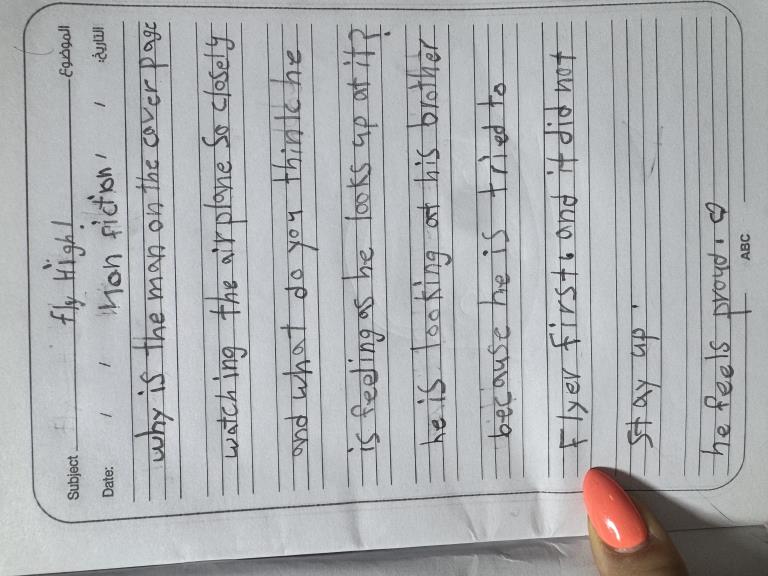 Subject fly High! الموضوع
Date: / / non fiction / / التاريخ:
why is the man on the cover page
watching the airplane so closely
and what do you think he
is feeling as he looks up at it?
he is looking at his brother
because he is tried to
Flyer first, and it did not
stay up.
he feels proud.
ABC